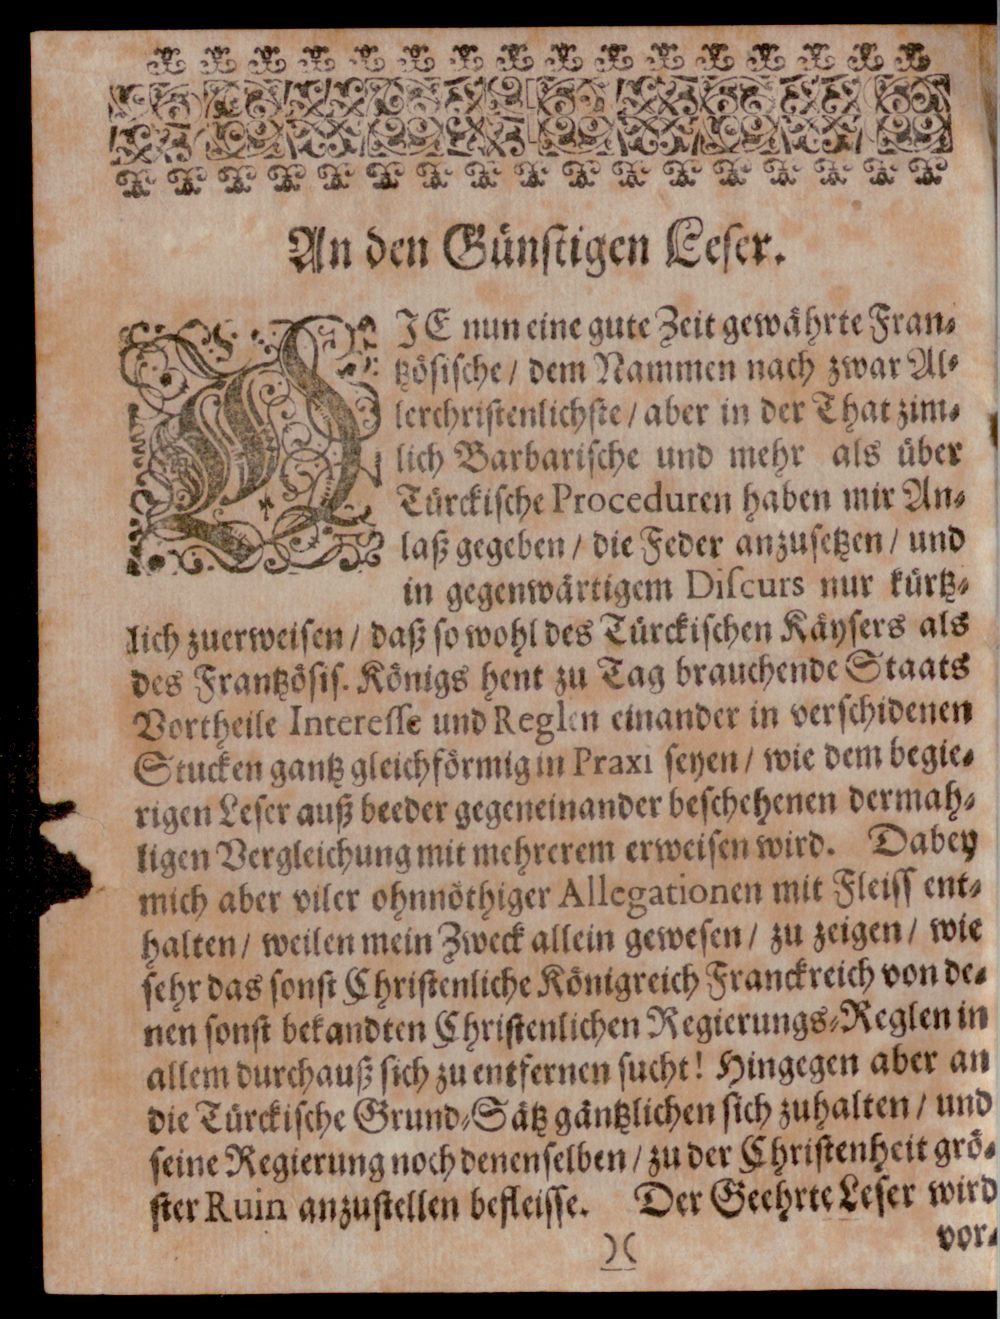 An den Günstigen Leser.
DIE nun eine gute Zeit gewährte Fran-
tzösische / dem Nammen nach zwar Al-
lerchristenlichste / aber in der That zim-
lich Barbarische und mehr als über
Türckische Proceduren haben mir An-
laß gegeben / die Feder anzusetzen / und
in gegenwärtigem Discurs nur kürtz-
lich zuerweisen / daß so wohl des Türckischen Käysers als
des Frantzösis. Königs hent zu Tag brauchende Staats
Vortheile Interesse und Reglen einander in verschidenen
Stucken gantz gleichförmig in Praxi seyen / wie dem begie-
rigen Leser auß beeder gegeneinander beschehenen dermah-
ligen Vergleichung mit mehrerem erweisen wird. Dabey
mich aber viler ohnnöthiger Allegationen mit Fleiss ent-
halten / weilen mein Zweck allein gewesen / zu zeigen / wie
sehr das sonst Christenliche Königreich Franckreich von de-
nen sonst bekandten Christenlichen Regierungs-Reglen in
allem durchauß sich zu entfernen sucht! Hingegen aber an
die Türckische Grund-Sätz gäntzlichen sich zuhalten / und
seine Regierung noch denenselben / zu der Christenheit grö-
ster Ruin anzustellen befleisse. Der Geehrte Leser wird
)( vor-